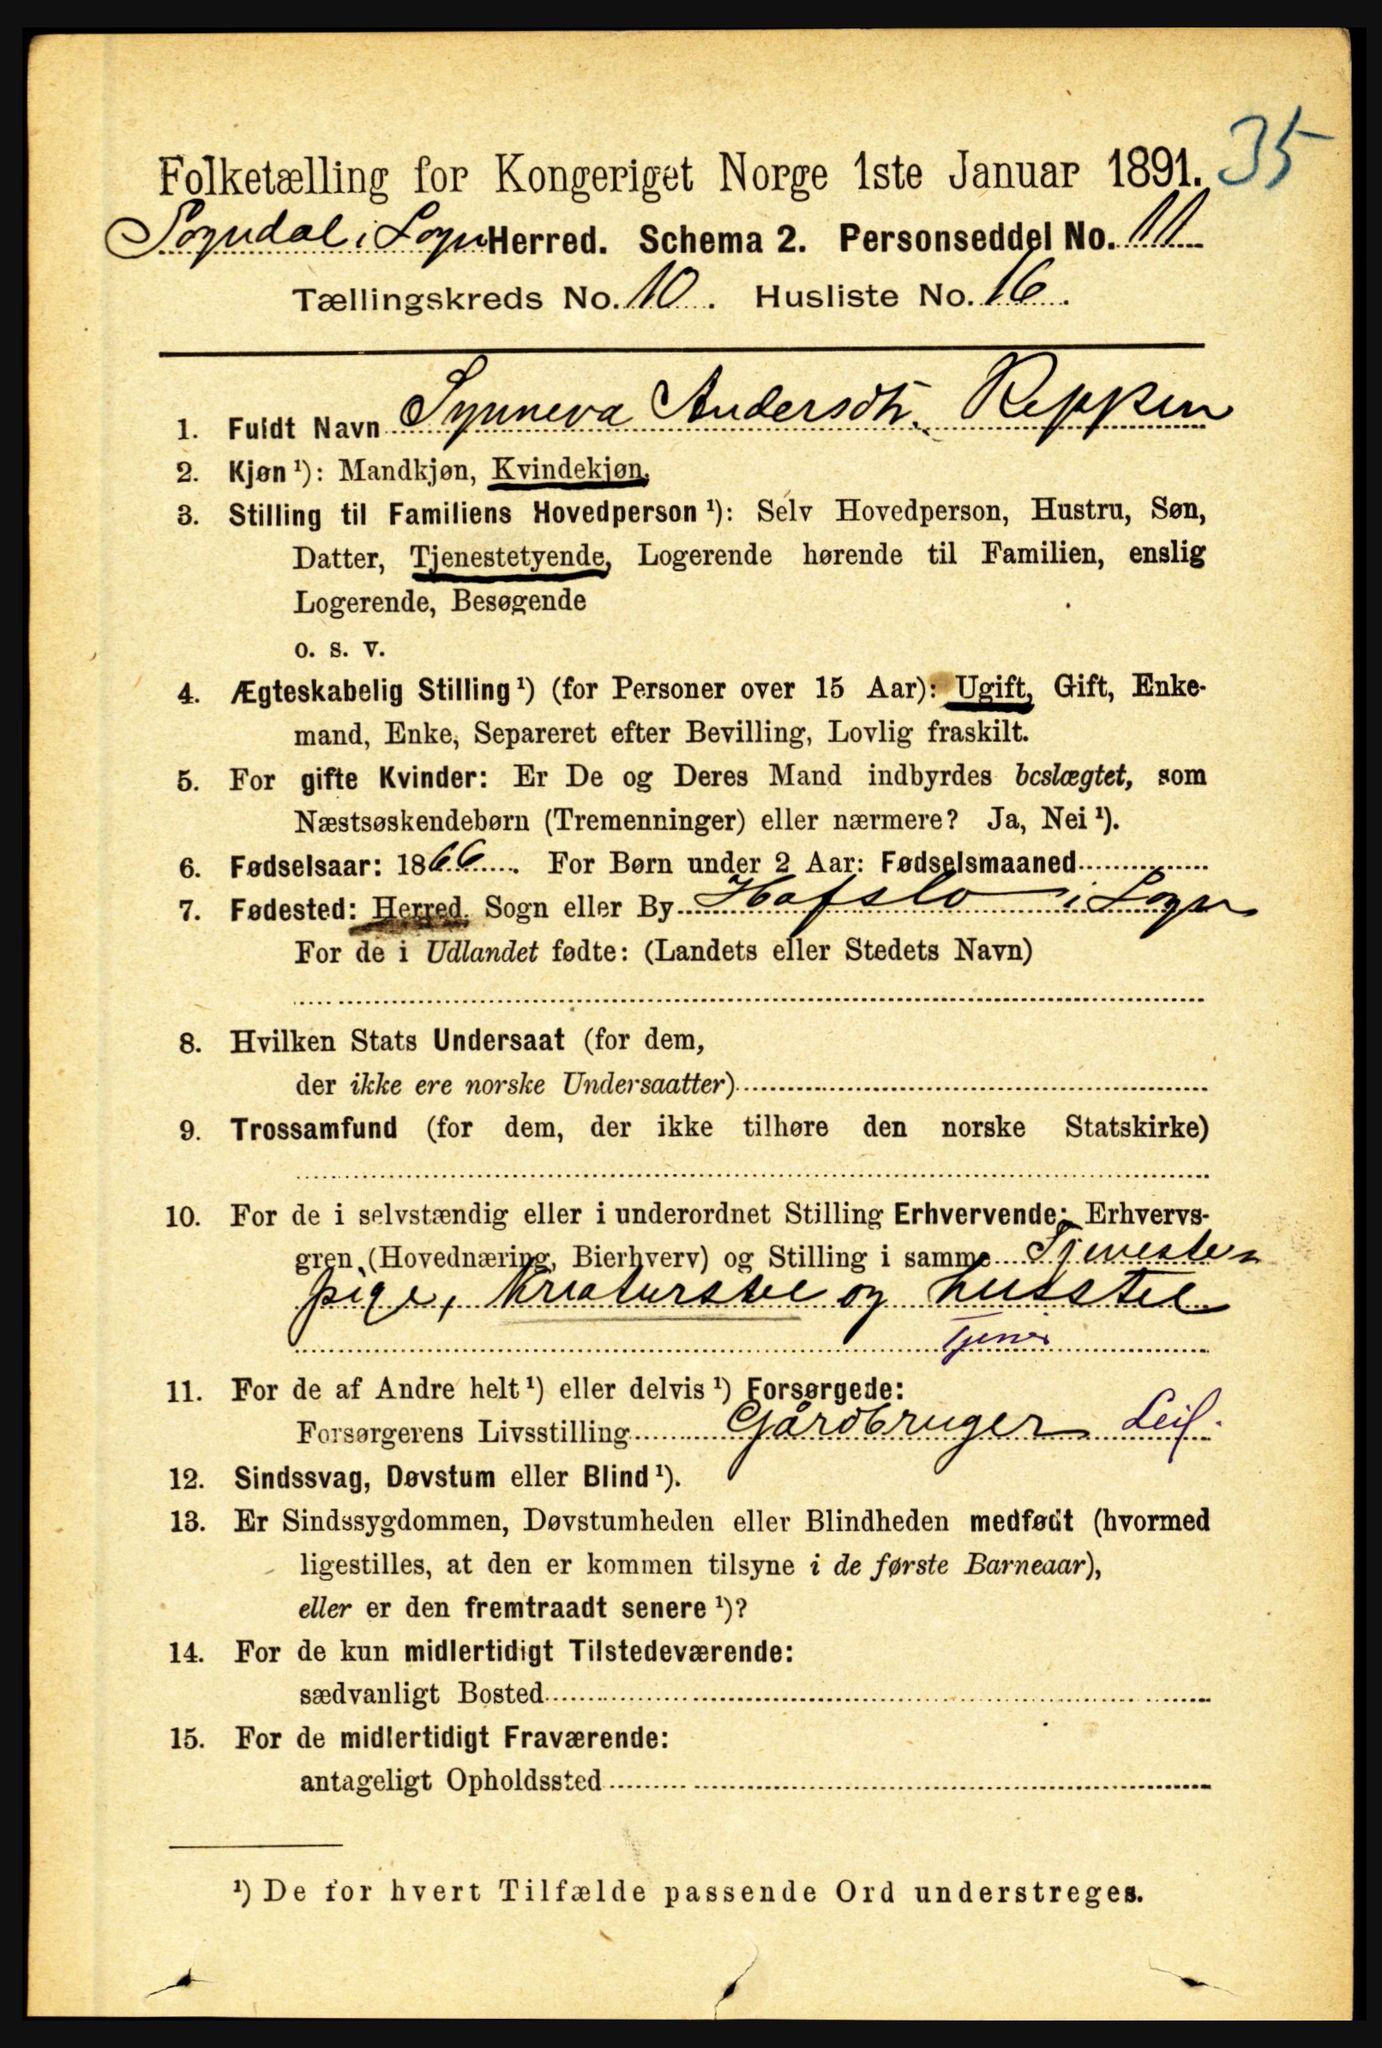 35
Folketælling for Kongeriget Norge 1ste Januar 1891.
Sogndal i Sogn Herred. Schema 2. Personseddel No. 11
Tællingskreds No. 10. Husliste No. 16.
1. Fuldt Navn Synneva Andersdtr. Reppen
2. Kjøn ¹): Mandkjøn, Kvindekjøn.
3. Stilling til Familiens Hovedperson ¹): Selv Hovedperson, Hustru, Søn,
Datter, Tjenestetyende, Logerende hørende til Familien, enslig
Logerende, Besøgende
o. s. v.
4. Ægteskabelig Stilling ¹) (for Personer over 15 Aar): Ugift, Gift, Enke-
mand, Enke, Separeret efter Bevilling, Lovlig fraskilt.
5. For gifte Kvinder: Er De og Deres Mand indbyrdes beslægtet, som
Næstsøskendebørn (Tremenninger) eller nærmere? Ja, Nei ¹).
6. Fødselsaar: 1866. For Børn under 2 Aar: Fødselsmaaned
7. Fødested: Herred, Sogn eller By Hafslo i Sogn
For de i Udlandet fødte: (Landets eller Stedets Navn)
8. Hvilken Stats Undersaat (for dem,
der ikke ere norske Undersaatter)
9. Trossamfund (for dem, der ikke tilhøre den norske Statskirke)
10. For de i selvstændig eller i underordnet Stilling Erhvervende: Erhvervs-
gren (Hovednæring, Bierhverv) og Stilling i samme Tjeneste=
pige, Kreaturstel og husstel
11. For de af Andre helt ¹) eller delvis ¹) Forsørgede:
Forsørgerens Livsstilling Gårdbruger Leil.
12. Sindssvag, Døvstum eller Blind ¹).
13. Er Sindssygdommen, Døvstumheden eller Blindheden medfødt (hvormed
ligestilles, at den er kommen tilsyne i de første Barneaar),
eller er den fremtraadt senere ¹)?
14. For de kun midlertidigt Tilstedeværende:
sædvanligt Bosted
15. For de midlertidigt Fraværende:
antageligt Opholdssted
¹) De for hvert Tilfælde passende Ord understreges.